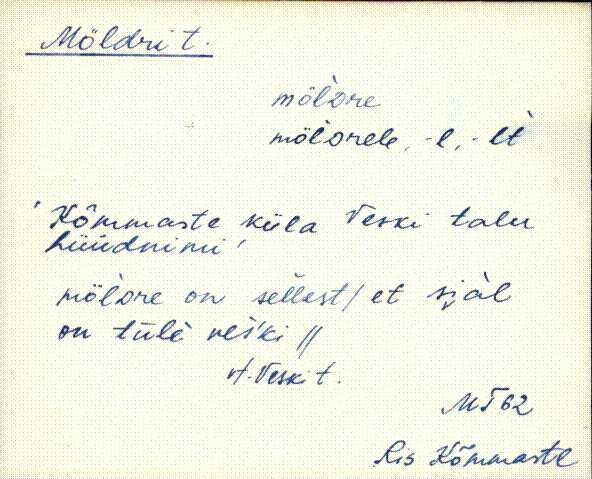 Möldri t.
mö̀ldre
mö̀ldrele, -l, -lt
'Kõmmaste küla Veski talu
hüüdnimi'
mö̀ldre on sellest / et siäl
on tüle veśki //
vt. Veski t.
MT 62
Ris Kõmmaste